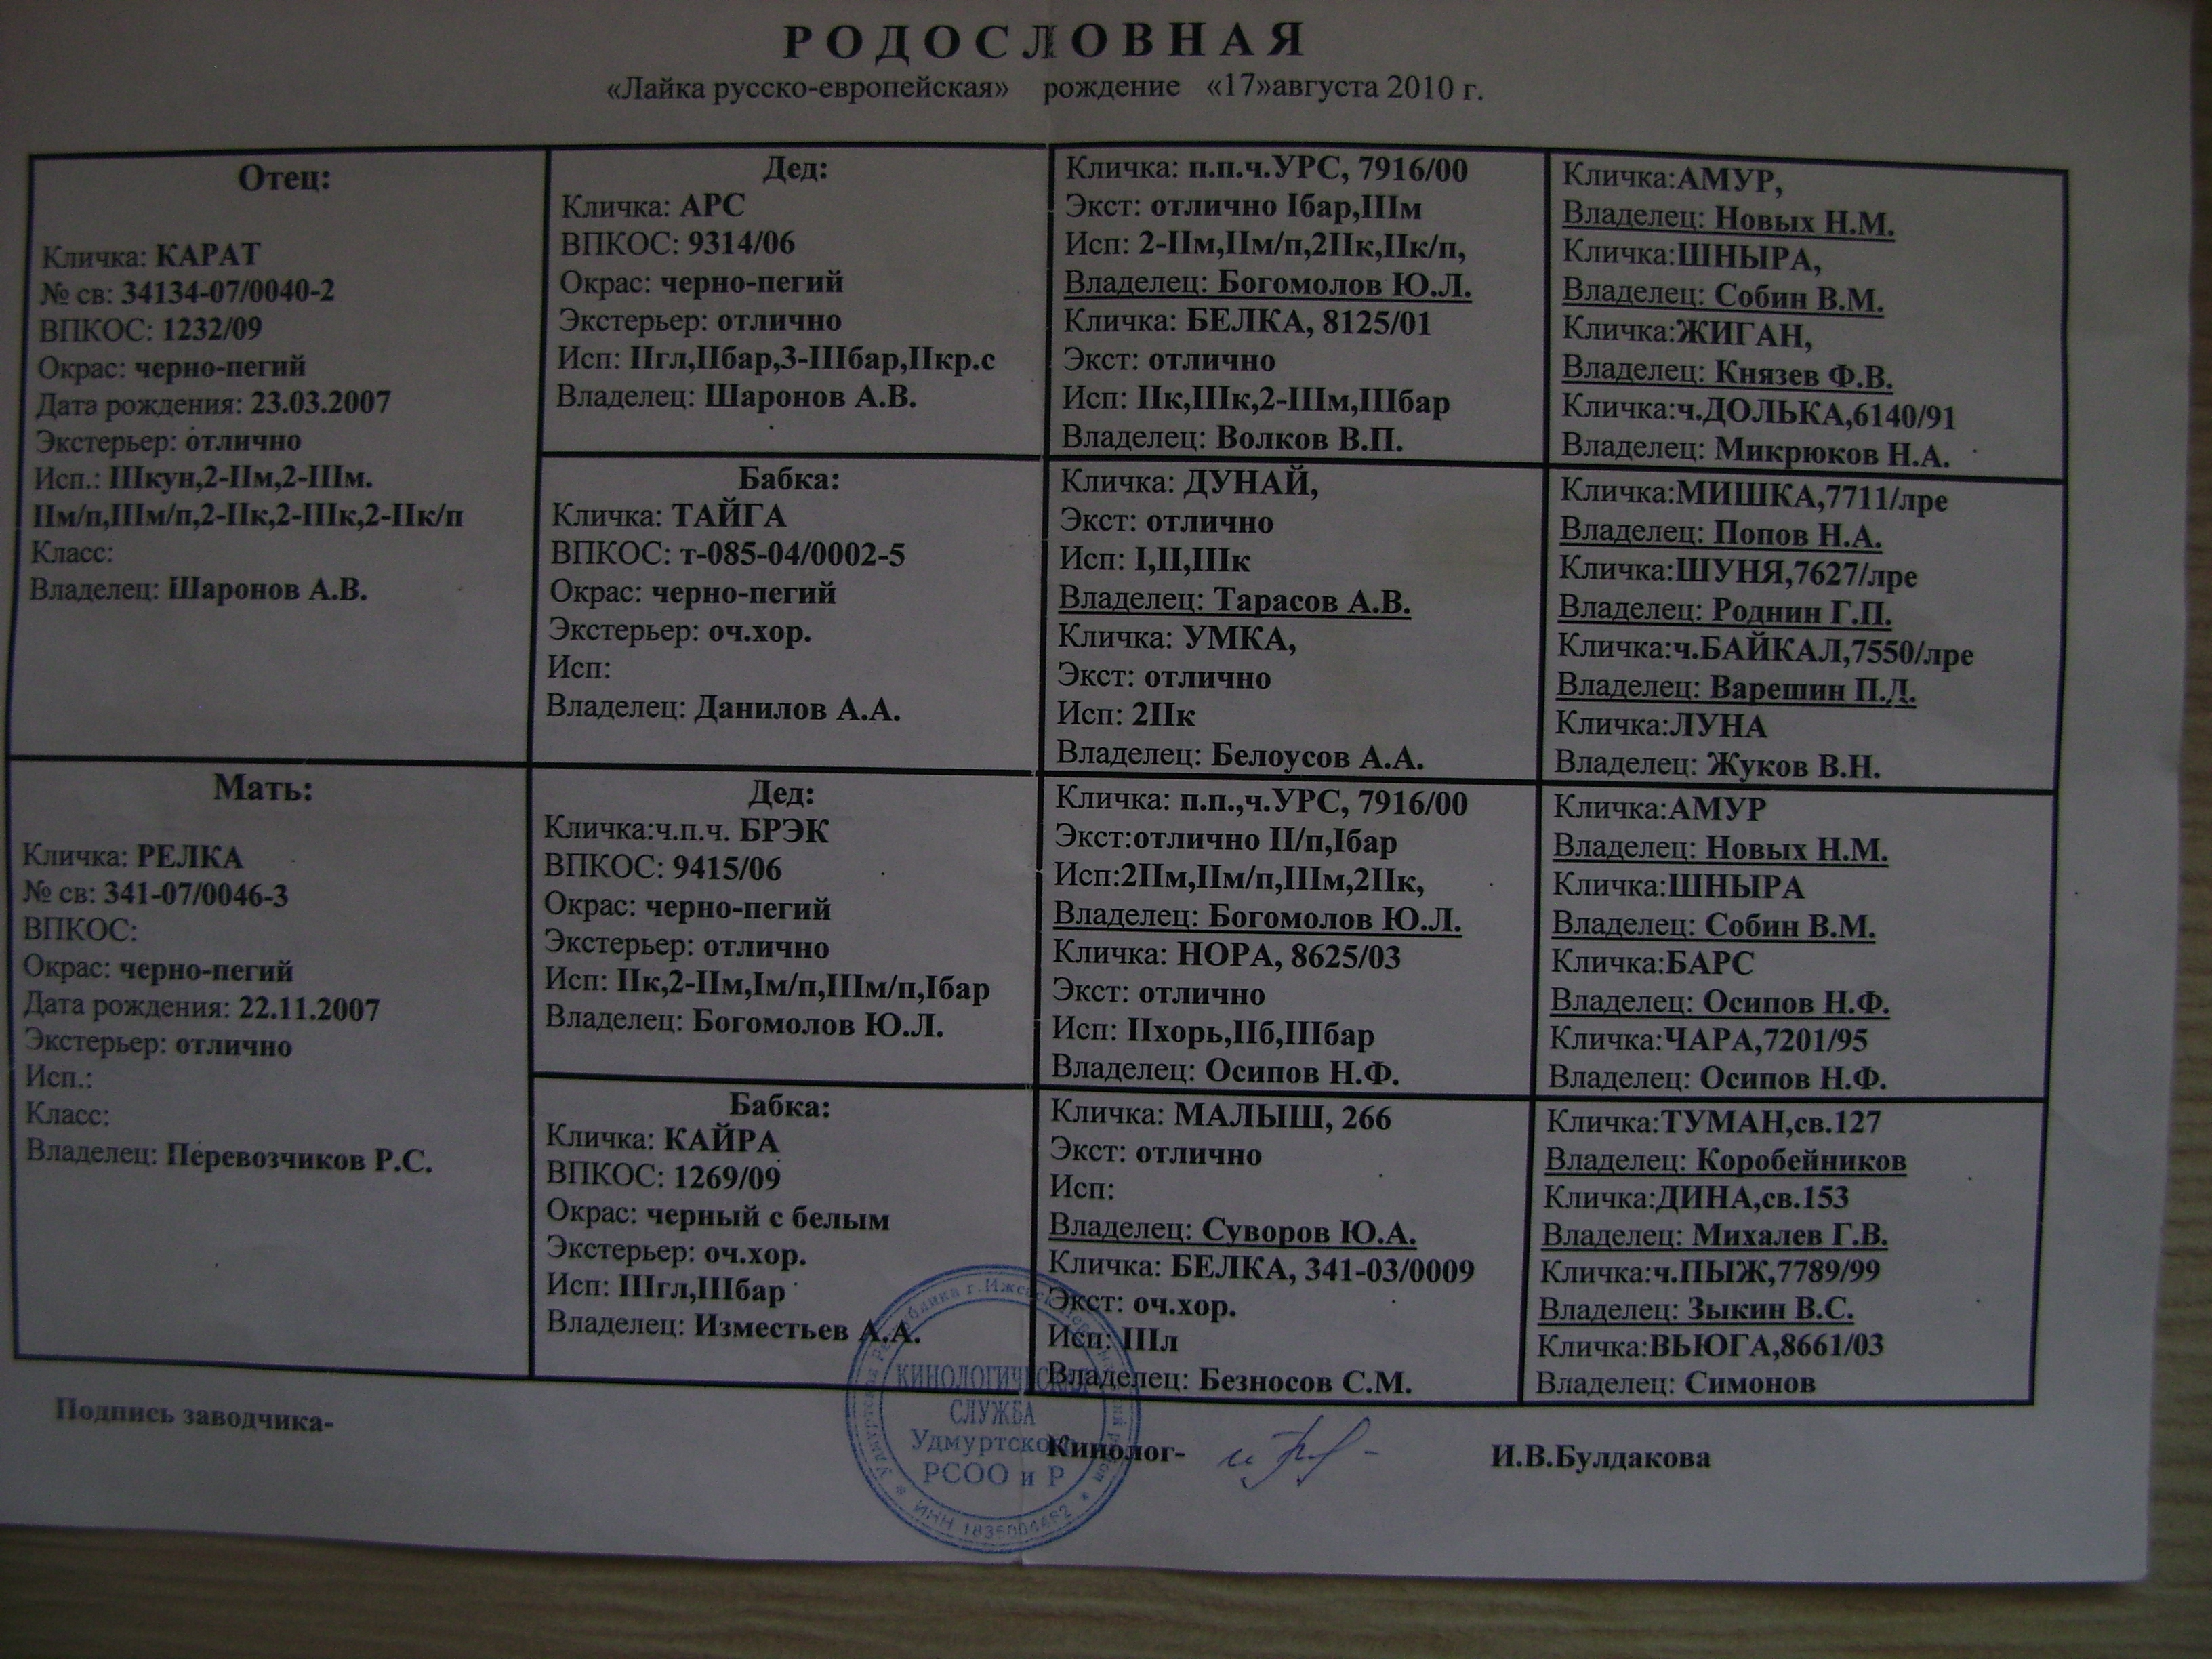 РОДОСЛОВНАЯ
«Лайка русско-европейская» рождение «17»августа 2010 г.
Отец:
Кличка: КАРАТ
№ св: 34134-07/0040-2
ВПКОС: 1232/09
Окрас: черно-пегий
Дата рождения: 23.03.2007
Экстерьер: отлично
Исп.: IIIкун,2-IIм,2-IIIм.
IIм/п,IIIм/п,2-IIк,2-IIIк,2-IIк/п
Класс:
Владелец: Шаронов А.В.
Дед:
Кличка: АРС
ВПКОС: 9314/06
Окрас: черно-пегий
Экстерьер: отлично
Исп: IIгл,IIбар,3-IIIбар,IIкр.с
Владелец: Шаронов А.В.
Бабка:
Кличка: ТАЙГА
ВПКОС: т-085-04/0002-5
Окрас: черно-пегий
Экстерьер: оч.хор.
Исп:
Владелец: Данилов А.А.
Кличка: п.п.ч.УРС, 7916/00
Экст: отлично Iбар,IIIм
Исп: 2-IIм,IIм/п,2IIк,IIк/п,
Владелец: Богомолов Ю.Л.
Кличка: БЕЛКА, 8125/01
Экст: отлично
Исп: IIк,IIIк,2-IIIм,IIIбар
Владелец: Волков В.П.
Кличка: ДУНАЙ,
Экст: отлично
Исп: I,II,IIIк
Владелец: Тарасов А.В.
Кличка: УМКА,
Экст: отлично
Исп: 2IIк
Владелец: Белоусов А.А.
Кличка:АМУР,
Владелец: Новых Н.М.
Кличка:ШНЫРА,
Владелец: Собин В.М.
Кличка:ЖИГАН,
Владелец: Князев Ф.В.
Кличка:ч.ДОЛЬКА,6140/91
Владелец: Микрюков Н.А.
Кличка:МИШКА,7711/лре
Владелец: Попов Н.А.
Кличка:ШУНЯ,7627/лре
Владелец: Роднин Г.П.
Кличка:ч.БАЙКАЛ,7550/лре
Владелец: Варешин П.Д.
Кличка:ЛУНА
Владелец: Жуков В.Н.
Мать:
Кличка: РЕЛКА
№ св: 341-07/0046-3
ВПКОС:
Окрас: черно-пегий
Дата рождения: 22.11.2007
Экстерьер: отлично
Исп.:
Класс:
Владелец: Перевозчиков Р.С.
Дед:
Кличка:ч.п.ч. БРЭК
ВПКОС: 9415/06
Окрас: черно-пегий
Экстерьер: отлично
Исп: IIк,2-IIм,Iм/п,IIIм/п,Iбар
Владелец: Богомолов Ю.Л.
Бабка:
Кличка: КАЙРА
ВПКОС: 1269/09
Окрас: черный с белым
Экстерьер: оч.хор.
Исп: IIIгл,IIIбар
Владелец: Изместьев А.А.
Кличка: п.п.,ч.УРС, 7916/00
Экст:отлично II/п,Iбар
Исп:2IIм,IIм/п,IIIм,2IIк,
Владелец: Богомолов Ю.Л.
Кличка: НОРА, 8625/03
Экст: отлично
Исп: IIхорь,IIб,IIIбар
Владелец: Осипов Н.Ф.
Кличка: МАЛЫШ, 266
Экст: отлично
Исп:
Владелец: Суворов Ю.А.
Кличка: БЕЛКА, 341-03/0009
Экст: оч.хор.
Исп: IIIл
Владелец: Безносов С.М.
Кличка:АМУР
Владелец: Новых Н.М.
Кличка:ШНЫРА
Владелец: Собин В.М.
Кличка:БАРС
Владелец: Осипов Н.Ф.
Кличка:ЧАРА,7201/95
Владелец: Осипов Н.Ф.
Кличка:ТУМАН,св.127
Владелец: Коробейников
Кличка:ДИНА,св.153
Владелец: Михалев Г.В.
Кличка:ч.ПЫЖ,7789/99
Владелец: Зыкин В.С.
Кличка:ВЬЮГА,8661/03
Владелец: Симонов
Подпись заводчика-
Кинолог-
И.В.Булдакова
СЛУЖБА
Удмуртского
РСОО и Р